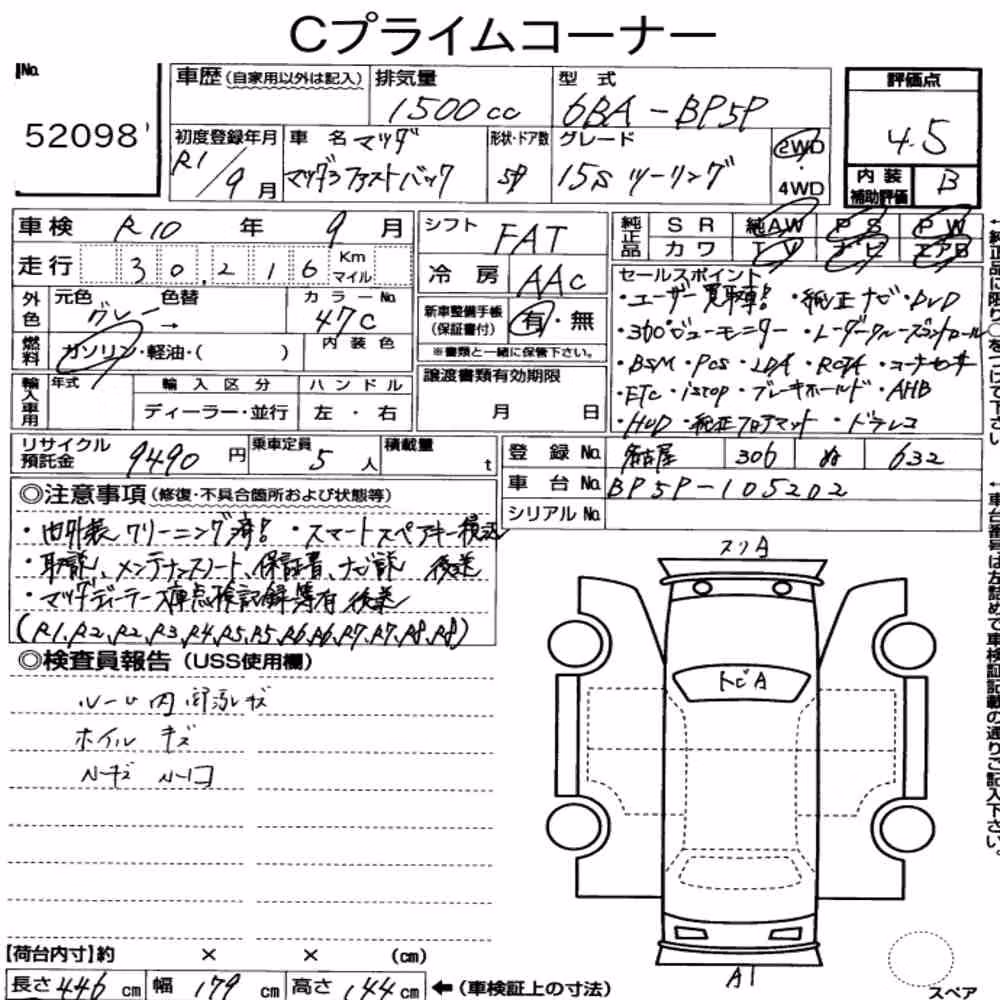 Cプライムコーナー
No.
52098
車歴(自家用以外は記入)
排気量
1500cc
型 式
6BA-BP5P
評価点
4.5
初度登録年月
R1/9月
車 名 マツダ
マツダ3 ファストバック
形状・ドア数
5D
グレード
15S ツーリング
2WD
・
4WD
内 装
補助評価
B
車検 R10 年 9 月
走行 30,216 Km
マイル
シフト
FAT
冷 房
AAC
純正品
S R 純AW P S P W
カワ T V ナビ エアB
外色
元色 色替
グレー →
カラーNo.
47C
燃料
ガソリン・軽油・( )
内 装 色
新車整備手帳
(保証書付)
有・無
※書類と一緒に保管下さい。
セールスポイント
・ユーザー買取車! ・純正ナビ・DVD
・360°ビューモニター ・レーダークルーズコントロール
・BSM・PCS・LDA・RCTA・コーナーセンサー
・ETC・istop・ブレーキホールド・AHB
・HUD・純正フロアマット・ドラレコ
輸入車用
年式
輸 入 区 分
ハ ン ド ル
ディーラー・並行
左 ・ 右
譲渡書類有効期限
月 日
リサイクル
預託金
9490 円
乗車定員
5 人
積載量
t
登 録 No. 名古屋 306 ぬ 632
車 台 No. BP5P-105202
シリアル No.
◎注意事項(修復・不具合箇所および状態等)
・内外装クリーニング済! ・スマートスペアキー後送
・取説、メンテナンスノート、保証書、ナビ説 後送
・マツダディーラー車点検記録簿有 後送
(R1,R2,R2,R3,R4,R5,R5,R6,R6,R7,R7,R8,R8)
◎検査員報告(USS使用欄)
ホイル キズ
スリA
トビA
A1
スペア
【荷台内寸】約 × × (cm)
長さ 446 cm 幅 179 cm 高さ 144 cm ←(車検証上の寸法)
←純正品に限り〇をつけて下さい
←車台番号は左詰めで車検証記載の通りご記入下さい。